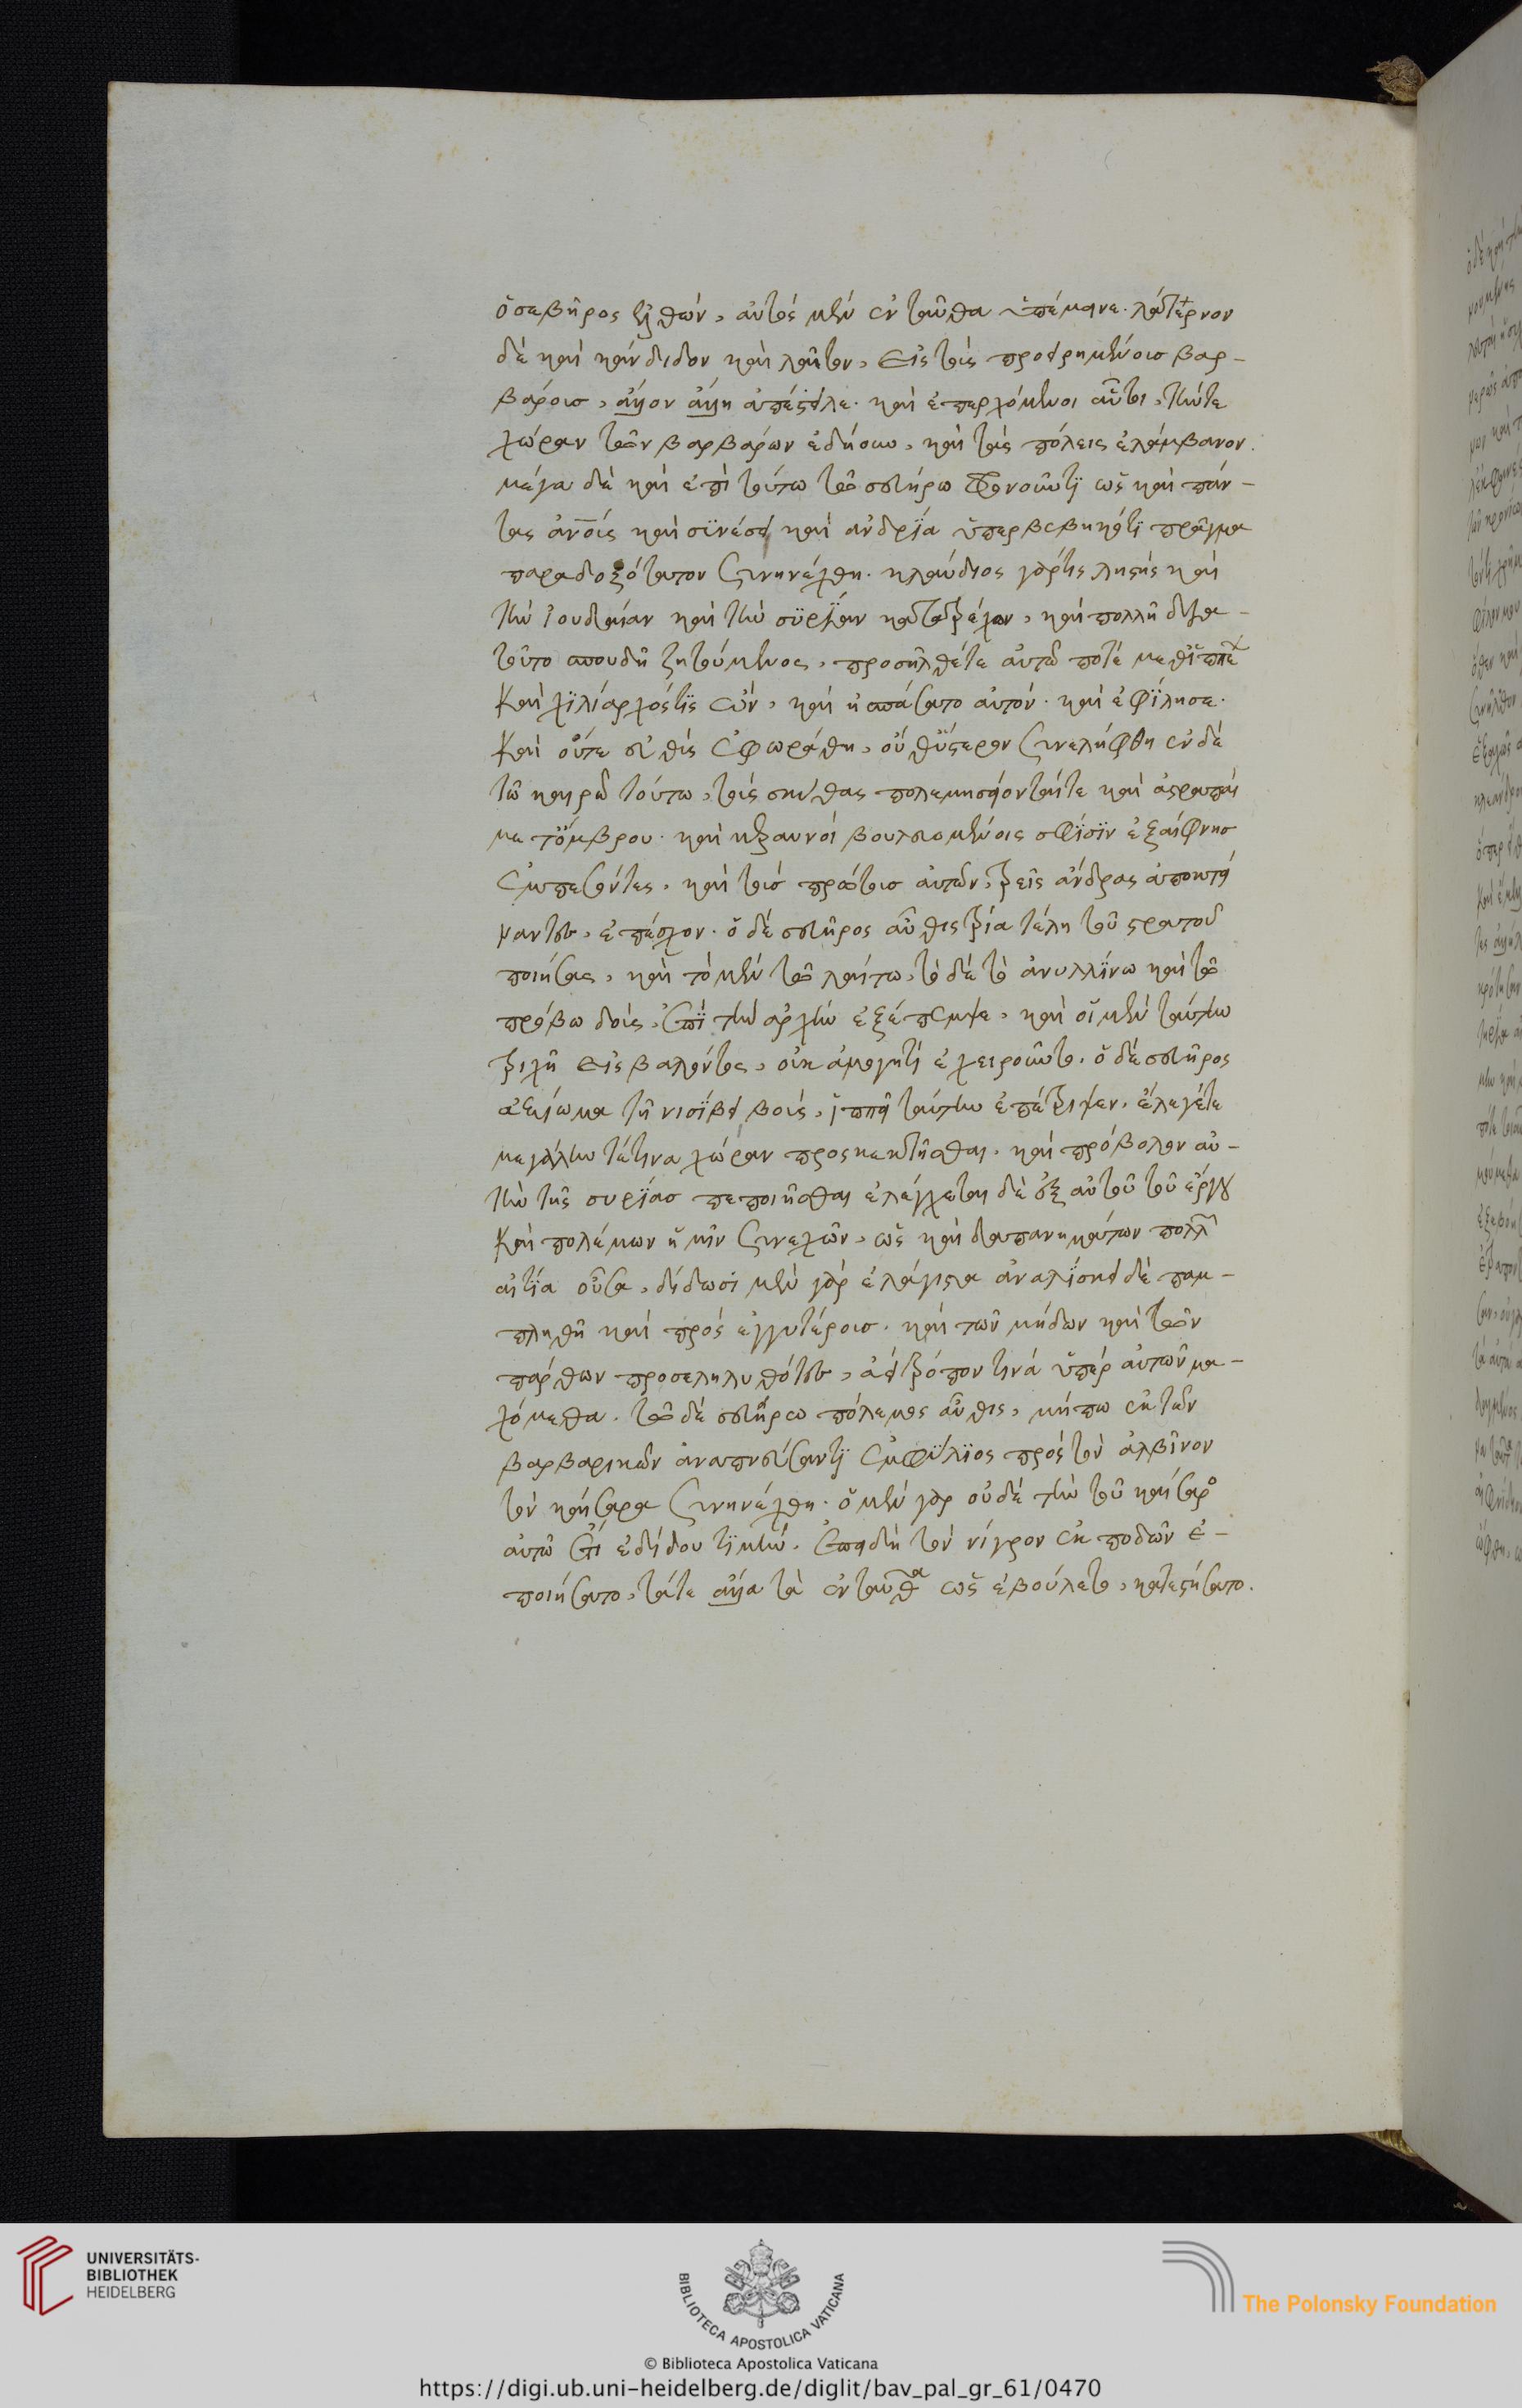 ὁ σεβῆρος ἐλθών, αὐτός μὲν ἐνταῦθα ὑπέμεινε. λατέρνον
δὲ καὶ κάνδιδον καὶ λαῖτον, εἰς τοὺς προειρημένους βαρ-
βάρους, ἄλλον ἄλλη ἀπέστειλε. καὶ ἐπερχόμενοι αὗτοι, τήν τε
χώραν τῶν βαρβάρων ἐδήουν, καὶ τὰς πόλεις ἐλάμβανον.
μέγα δὲ καὶ ἐπὶ τούτω τῶ σευήρω φρονοῦντϊ ὡς καὶ πάν-
τας ἀν̅ο̅υς καὶ σϋνέσει καὶ ανδρϊα ὑπερβεβηκότϊ πρᾶγμα
παραδοξότατον συνηνέχθη. κλαύδιος γάρ τις ληστής καὶ
τὴν ἰουδαίαν καὶ τὴν σϋρίαν κατατρέχων, καὶ πολλῆ διὰ
τοῦτο σπουδῆ ζητούμενος, προσῆλθέ τε αὐτῶ ποτέ μεθ' ἱππέ
καὶ χϊλίαρχός τϊς ὤν, καὶ ἠσπάσατο αὐτόν. καὶ ἐφϊλησε.
καὶ οὔτε εὐθὺς ἐφωράθη, οὔθ' ὕστερον συνελήφθη ἐν δὲ
τῶ καιρῶ τούτω, τοὺς σκύθας πολεμησείοντάς τε καὶ ἀστραπαί
με τ' ὄμβρου. καὶ κεραυνοί βουλευομένοις σφϊσϊν ἐξαίφνησ
ἐμπεσόντες, καὶ τοὺσ πρώτουσ αὐτῶν, τρεῖς ἄνδρας ἀποκτεί
ναντες, ἐπέσχον. ὁ δὲ σευῆρος αὖθις τρία τέλη τοῦ στρατοῦ
ποιήσας, καὶ τὸ μὲν τῶ λαίτω, τὸ δὲ τῶ ἀνυλλίνω καὶ τῶ
πρόβω δούς, ἐπϊ τὴν ἀρχὴν ἐξέπεμψε, καὶ οἱ μὲν ταύτην
τριχῆ εἰσβαλόντες, οὐκ ἀμογητί ἐχειροῦντο. ὁ δὲ σευῆρος
ἀξίωμα τῆ νισίβει δούς, ἱππεῖ ταύτην ἐπέτρεψεν. ἔλεγέ τε
μεγάλην τέ τινα χώραν προσκεκτῆσθαι. καὶ πρόβολον αὐ-
τὴν τῆς συρϊασ πεποιῆσθαι ἐλέγχεται δὲ ἐξ αὐτοῦ τοῦ ἔργου
καὶ πολέμων ἡμῖν συνεχῶν, ὡς καὶ δαπανημάτων πολλ
αἰτϊα οὖσα, δίδωσί μὲν γὰρ ἐλάχιστα ἀναλϊσκει δὲ παμ-
πληθῆ καὶ πρός ἐγγυτέρουσ. καὶ τῶν μήδων καὶ τῶν
πάρθων προσεληλυθότες, ἀεί τρόπον τινά ὑπέρ αὐτῶν μα-
χόμεθα. τῶ δὲ σευήρω πόλεμος αὖθις, μήπω ἐκ τῶν
βαρβαρικῶν ἀναπνεύσαντϊ ἐμφύλϊος πρός τὸν ἀλβῖνον
τὸν καίσαρα συνηνέχθη. ὁ μὲν γὰρ οὐδὲ τὴν τοῦ καίσαρο
αὐτῶ ἔτι ἐδίδου τϊμήν. ἐπειδὴ τὸν νίγρον ἐκ ποδῶν ἐ-
ποιήσατο, τά τε ἄλλα τὰ ἐνταῦθα ὡς ἐβούλετο, κατεστήσατο.
UNIVERSITÄTS-
BIBLIOTHEK
HEIDELBERG
BIBLIOTECA APOSTOLICA VATICANA
The Polonsky Foundation
© Biblioteca Apostolica Vaticana
https://digi.ub.uni-heidelberg.de/diglit/bav_pal_gr_61/0470